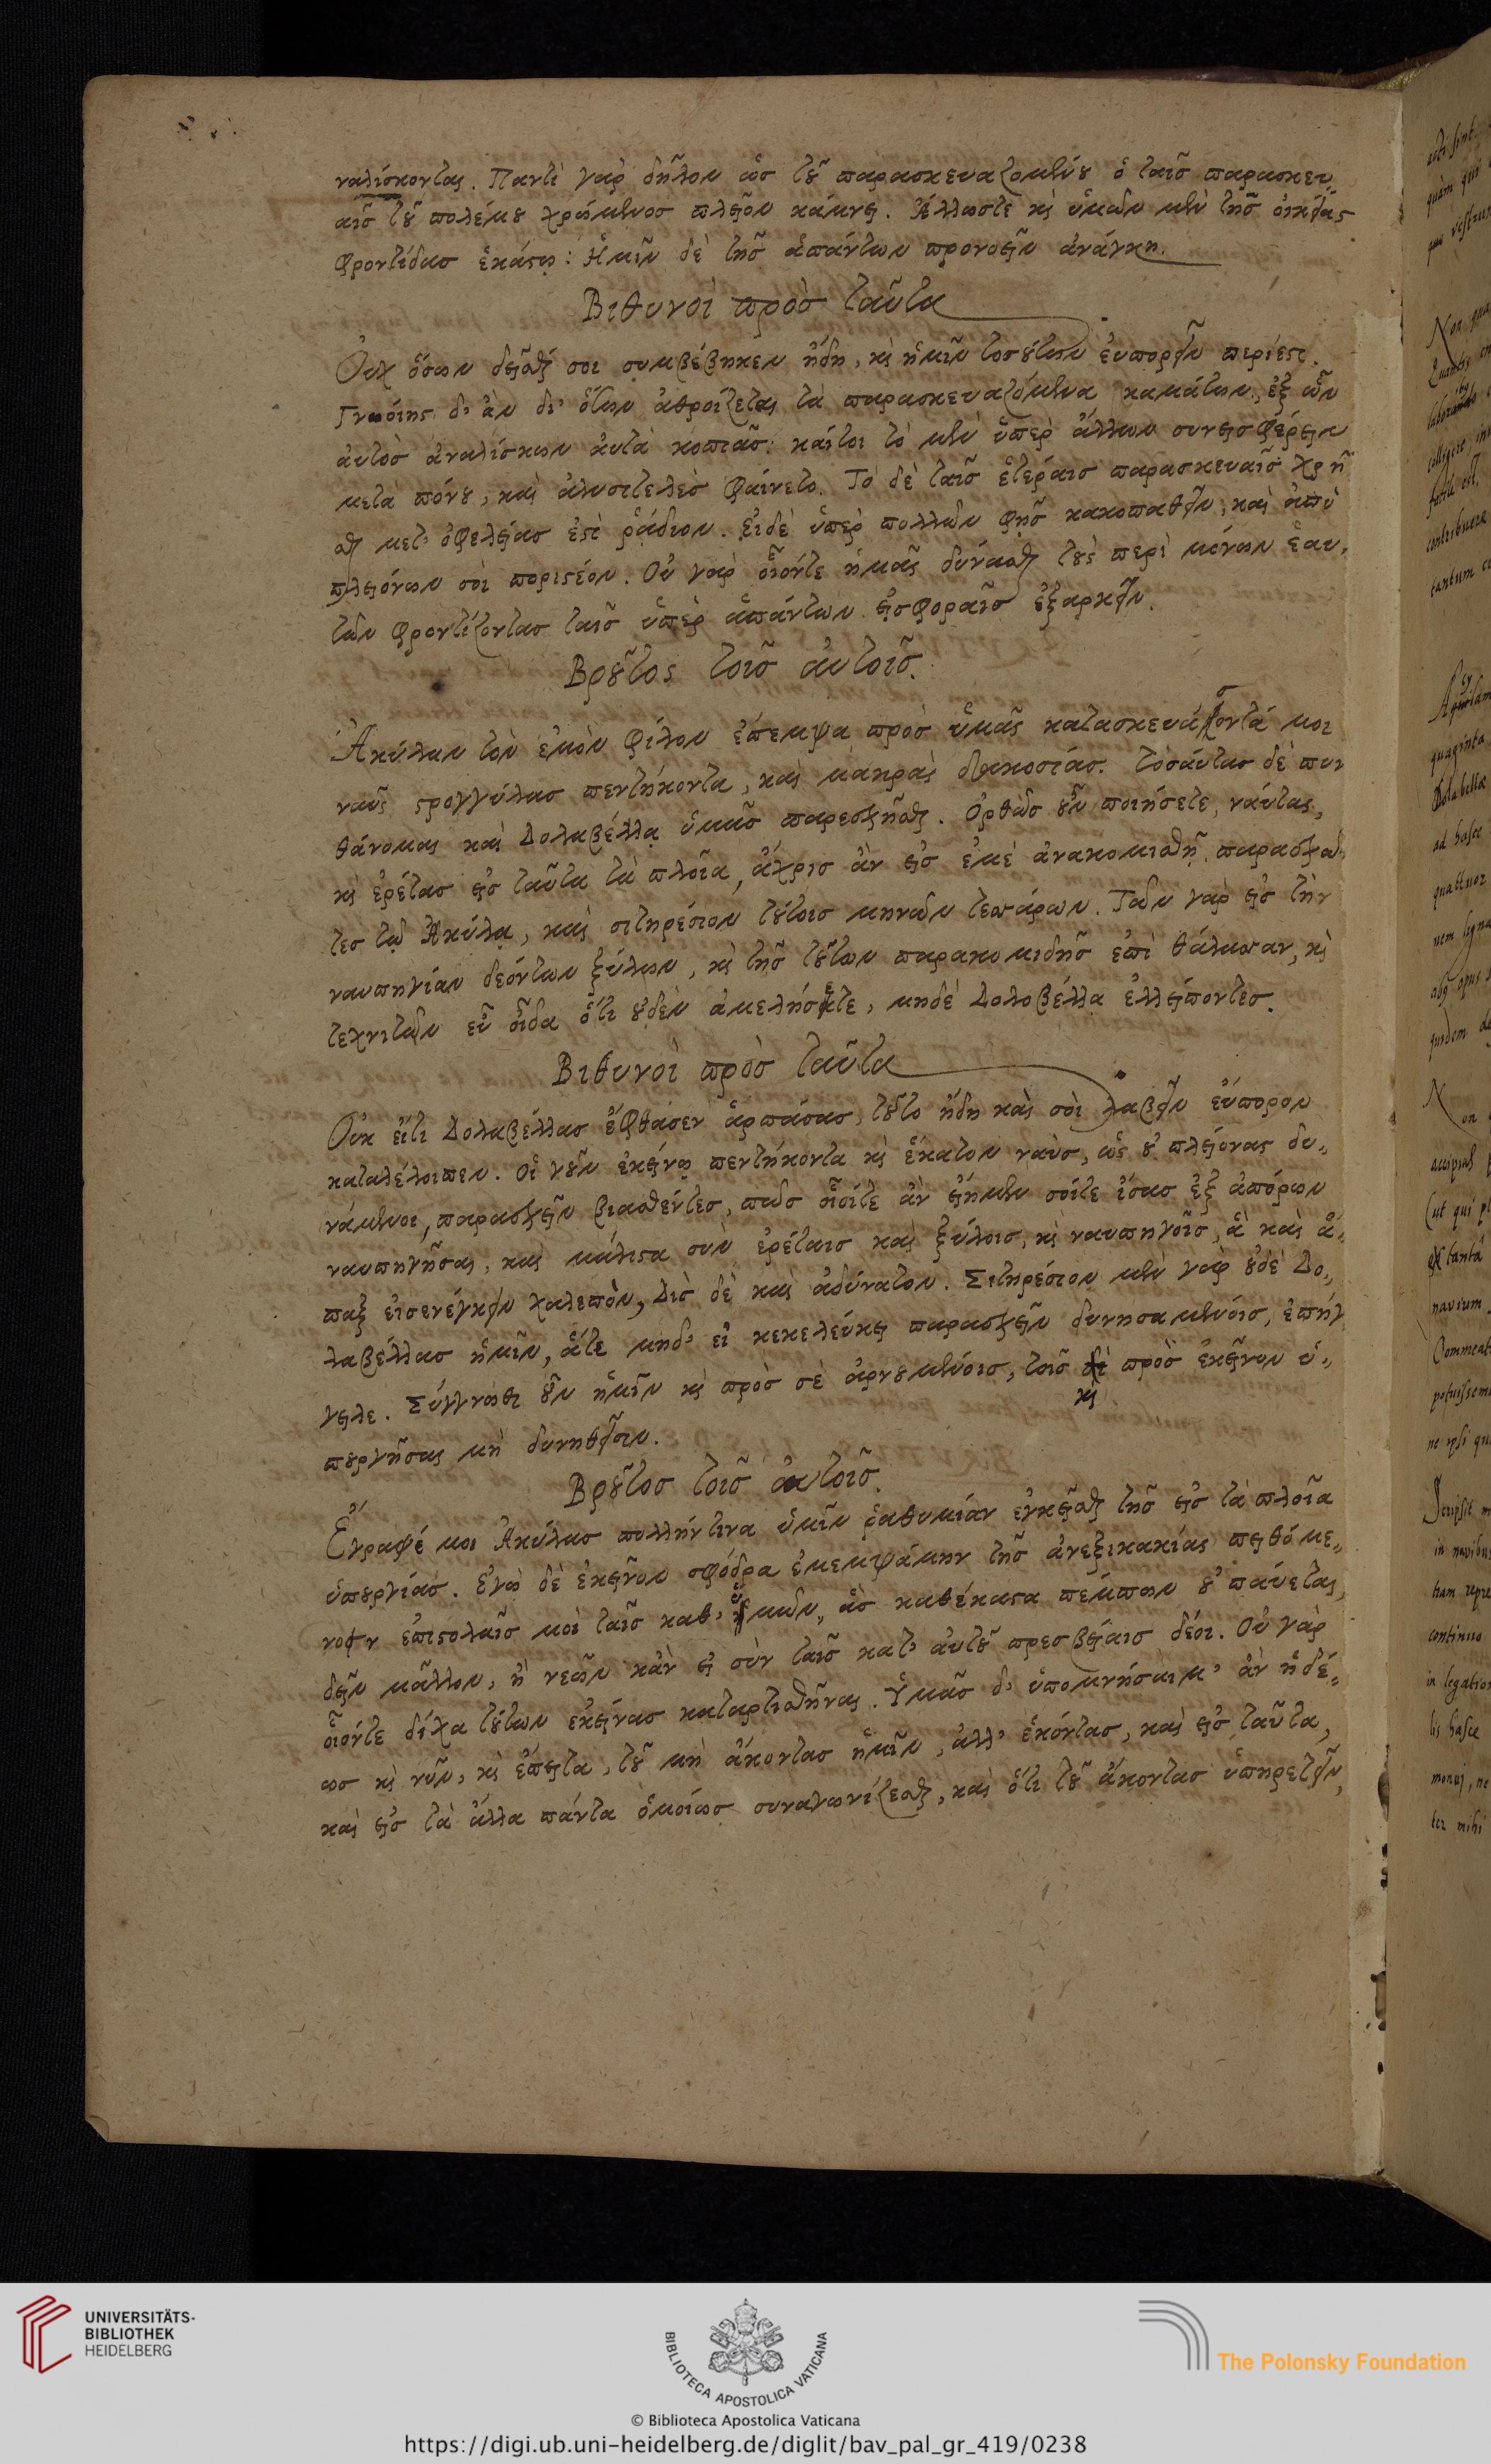 ναλίσκοντας. Παντὶ γὰρ δῆλον ὡσ τοῦ παρασκευαζομένου ὁ ταῖσ παρασκευ
αῖσ τοῦ πολέμου χρώμενοσ πλεῖον κάμνει. Ἄλλωστε καὶ ὑμῶν μὲν τῆσ οἰκείας
φροντίδασ ἑκάστῳ: Ἡμῖν δὲ τῆσ ἁπάντων προνοεῖν ἀνάγκη.
Βιθυνοὶ πρὸσ ταῦτα
Οὐχ ὅσων δεῖσθαί σοι συμβέβηκεν ἤδη, καὶ ἡμῖν τοσούτων εὐπορεῖν περίεστι.
Γνοίης δ' ἂν δι' ὅτων ἀθροίζεται τὰ παρασκευαζόμενα καμάτων, ἐξ ὧν
αὐτὸσ ἀναλίσκων αὐτὰ κοπιᾶσ: καίτοι τὸ μὲν ὑπὲρ ἄλλων συνεισφέρειν
μετὰ πόνου, καὶ ἀλυσιτελὲσ φαίνετο. Τὸ δὲ ταῖσ ἑτέραισ παρασκευαῖσ χρῆ
σθαι μετ' ὀφελείασ ἐστὶ ῥάδιον. Εἰδὲ ὑπὲρ πολλῶν φῂσ κακοπαθεῖν, καὶ ἀπὸ
πλειόνων σοὶ ποριστέον. Οὐ γὰρ οἷόντε ἡμᾶσ δύνασθαι τοὺς περὶ μόνων ἑαυ,
τῶν φροντίζοντασ ταῖσ ὑπὲρ ἁπάντων εἰσφοραῖσ ἐξαρκεῖν.
Βροῦτος τοῖσ αὐτοῖσ.
Ἀκύλαν τὸν ἐμὸν φίλον ἔπεμψα πρὸσ ὑμᾶσ κατασκευάσοντά μοι
ναῦς στρογγύλασ πεντήκοντα, καὶ μακρὰς διακοσίασ. τοσαύτασ δὲ πυν
θάνομαι καὶ Δολαβέλλᾳ ὑμᾶσ παρεσχῆσθαι. Ὀρθῶσ οὖν ποιήσετε, ναύτας,
καὶ ἐρέτασ εἰσ ταῦτα τὰ πλοῖα, ἄχρισ ἂν εἰσ ἐμὲ ἀνακομισθῇ, παρασχόν
τεσ τῷ Ἀκύλᾳ, καὶ σιτηρέσιον τούτοισ μηνῶν τεσσάρων. Τῶν γὰρ εἰσ τὴν
ναυπηγίαν δεόντων ξύλων, καὶ τῆσ τούτων παρακομιδῆσ ἐπὶ θάλασσαν, καὶ
τεχνιτῶν εὖ οἶδα ὅτι οὐδὲν ἀμελήσετε, μηδὲ Δολοβέλλᾳ ἐλλείποντεσ.
Βιθυνοὶ πρὸσ ταῦτα
Οὐκ εἴτι Δολαβέλλασ ἔφθασεν ἁρπάσασ, τοῦτο ἤδη καὶ σοὶ λαβεῖν εὔπορον
καταλέλοιπεν. Οἱ γοῦν ἐκείνῳ πεντήκοντα καὶ ἑκατὸν ναῦσ, ὡς οὐ πλείονας δυ,,
νάμενοι, παρασχεῖν βιασθέντεσ, πῶσ οἷοίτε ἂν εἴημεν σοίτε ἴσασ ἐξ ἀπόρων
ναυπηγῆσαι, καὶ μάλιστα σὺν ἐρέταισ καὶ ξύλοισ, καὶ ναυπηγοῖσ, ἃ καὶ ἅ,,
παξ εἰσενέγκειν χαλεπὸν, δὶσ δὲ καὶ ἀδύνατον. Σιτηρέσιον μὲν γὰρ οὐδὲ Δο,,
λαβέλλασ ἡμῖν, ἅτε μηδ' εἰ κεκελεύκει παρασχεῖν δυνησαμένοισ, ἐπήγ
γειλε. Σύγγνωθι οὖν ἡμῖν καὶ πρὸσ σὲ ἀρνουμένοισ, τοῖσ καὶ πρὸσ ἐκεῖνον ὑ,,
πουργῆσαι μὴ δυνηθεῖσιν.
Βροῦτοσ τοῖσ αὐτοῖσ.
Ἔγραψέ μοι Ἀκύλασ πολλήντινα ὑμῖν ῥαθυμίαν ἐγκεῖσθαι τῆσ εἰσ τὰ πλοῖα
ὑπουργίασ. Ἐγὼ δὲ ἐκεῖνον σφόδρα ἐμεμψάμην τῆσ ἀνεξικακίας πειθόμε,,
νοσ ἐπιστολαῖσ μοὶ ταῖσ καθ' ὑμῶν, ἃσ καθέκαστα πέμπων οὐ παύεται,
δεῖν μᾶλλον, ἢ νεῶν κἂν εἰ σὺν ταῖσ κατ' αὐτοῦ πρεσβείαισ δέοι. Οὐ γὰρ
οἷόντε δίχα τούτων ἐκείνασ καταρτισθῆναι. Ὑμᾶσ δ' ὑπομνήσαιμ' ἂν ἡδέ,,
ωσ καὶ νῦν, καὶ ἔπειτα, τοῦ μὴ ἄκοντασ ἡμῖν, ἀλλ' ἑκόντασ, καὶ εἰσ ταῦτα,
καὶ εἰσ τὰ ἄλλα πάντα ὁμοίωσ συναγωνίζεσθαι, καὶ ὅτι τοῦ ἄκοντασ ὑπηρετεῖν,
UNIVERSITÄTS-
BIBLIOTHEK
HEIDELBERG
BIBLIOTECA APOSTOLICA VATICANA
The Polonsky Foundation
© Biblioteca Apostolica Vaticana
https://digi.ub.uni-heidelberg.de/diglit/bav_pal_gr_419/0238